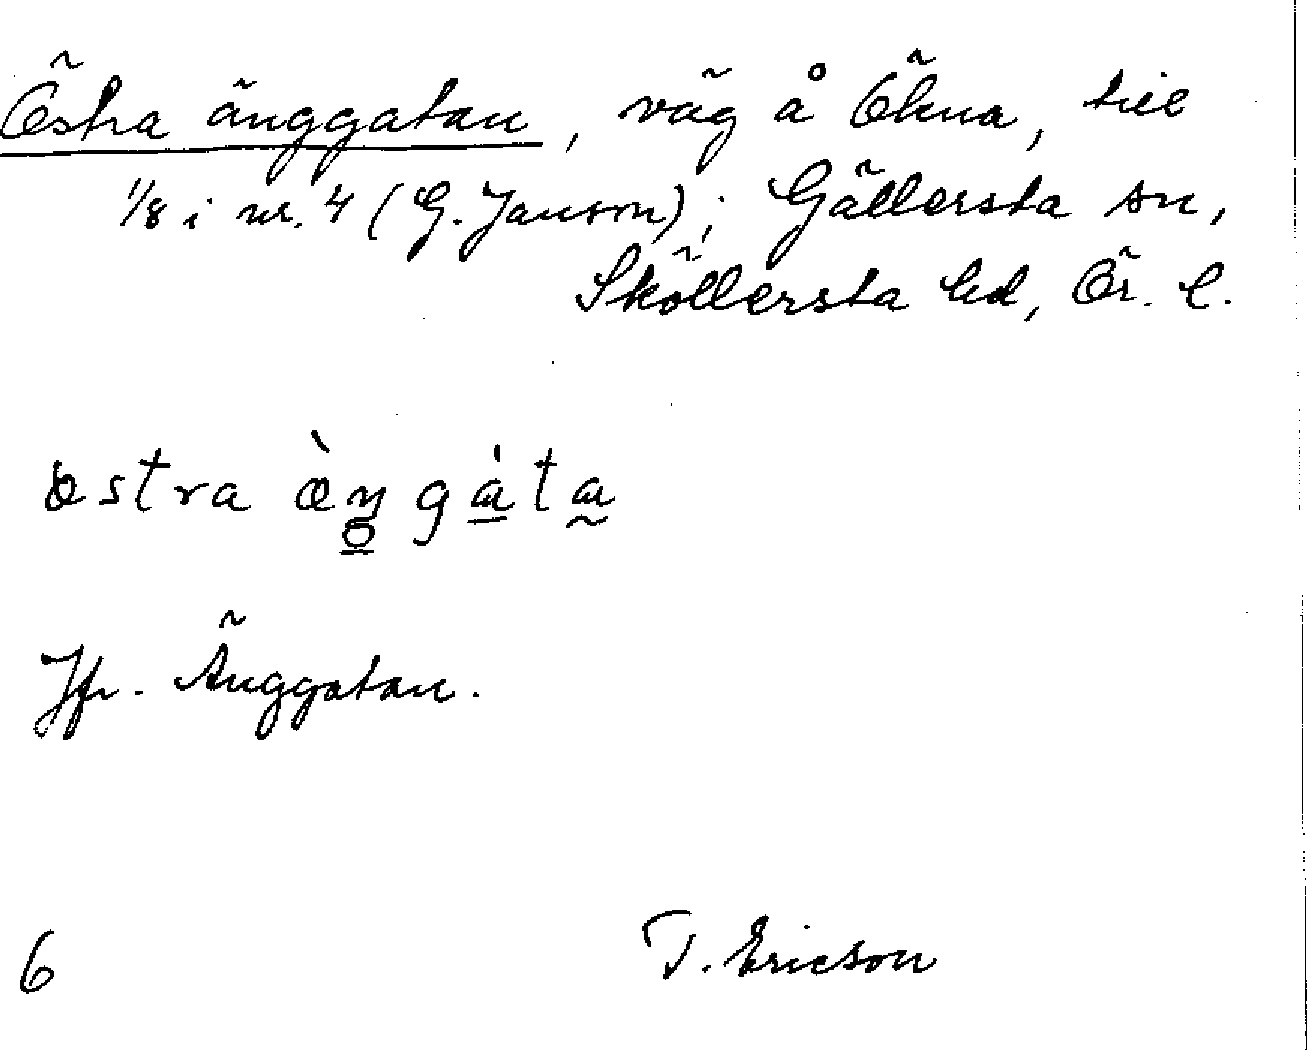 Östra änggatan, väg å Ökna, till
1/8 i nr. 4 (G. Janson); Gällersta sn,
Sköllersta hd, Ör. l.
östra æ̀ŋgàta
Jfr. Änggatan.
6 T. Ericson